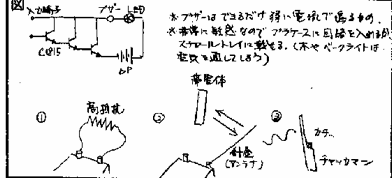 図
入力端子
ブザー
LED
C1815
※ブザーはできるだけ弱い電流で鳴るもの。
※非常に敏感なのでプラケースに回路を入れるか
スチロールトレイに載せる。(木やベークライトは
電気を通してしまう)
①
高抵抗
②
帯電体
針金
(アンテナ)
③
カチッ
チャッカマン